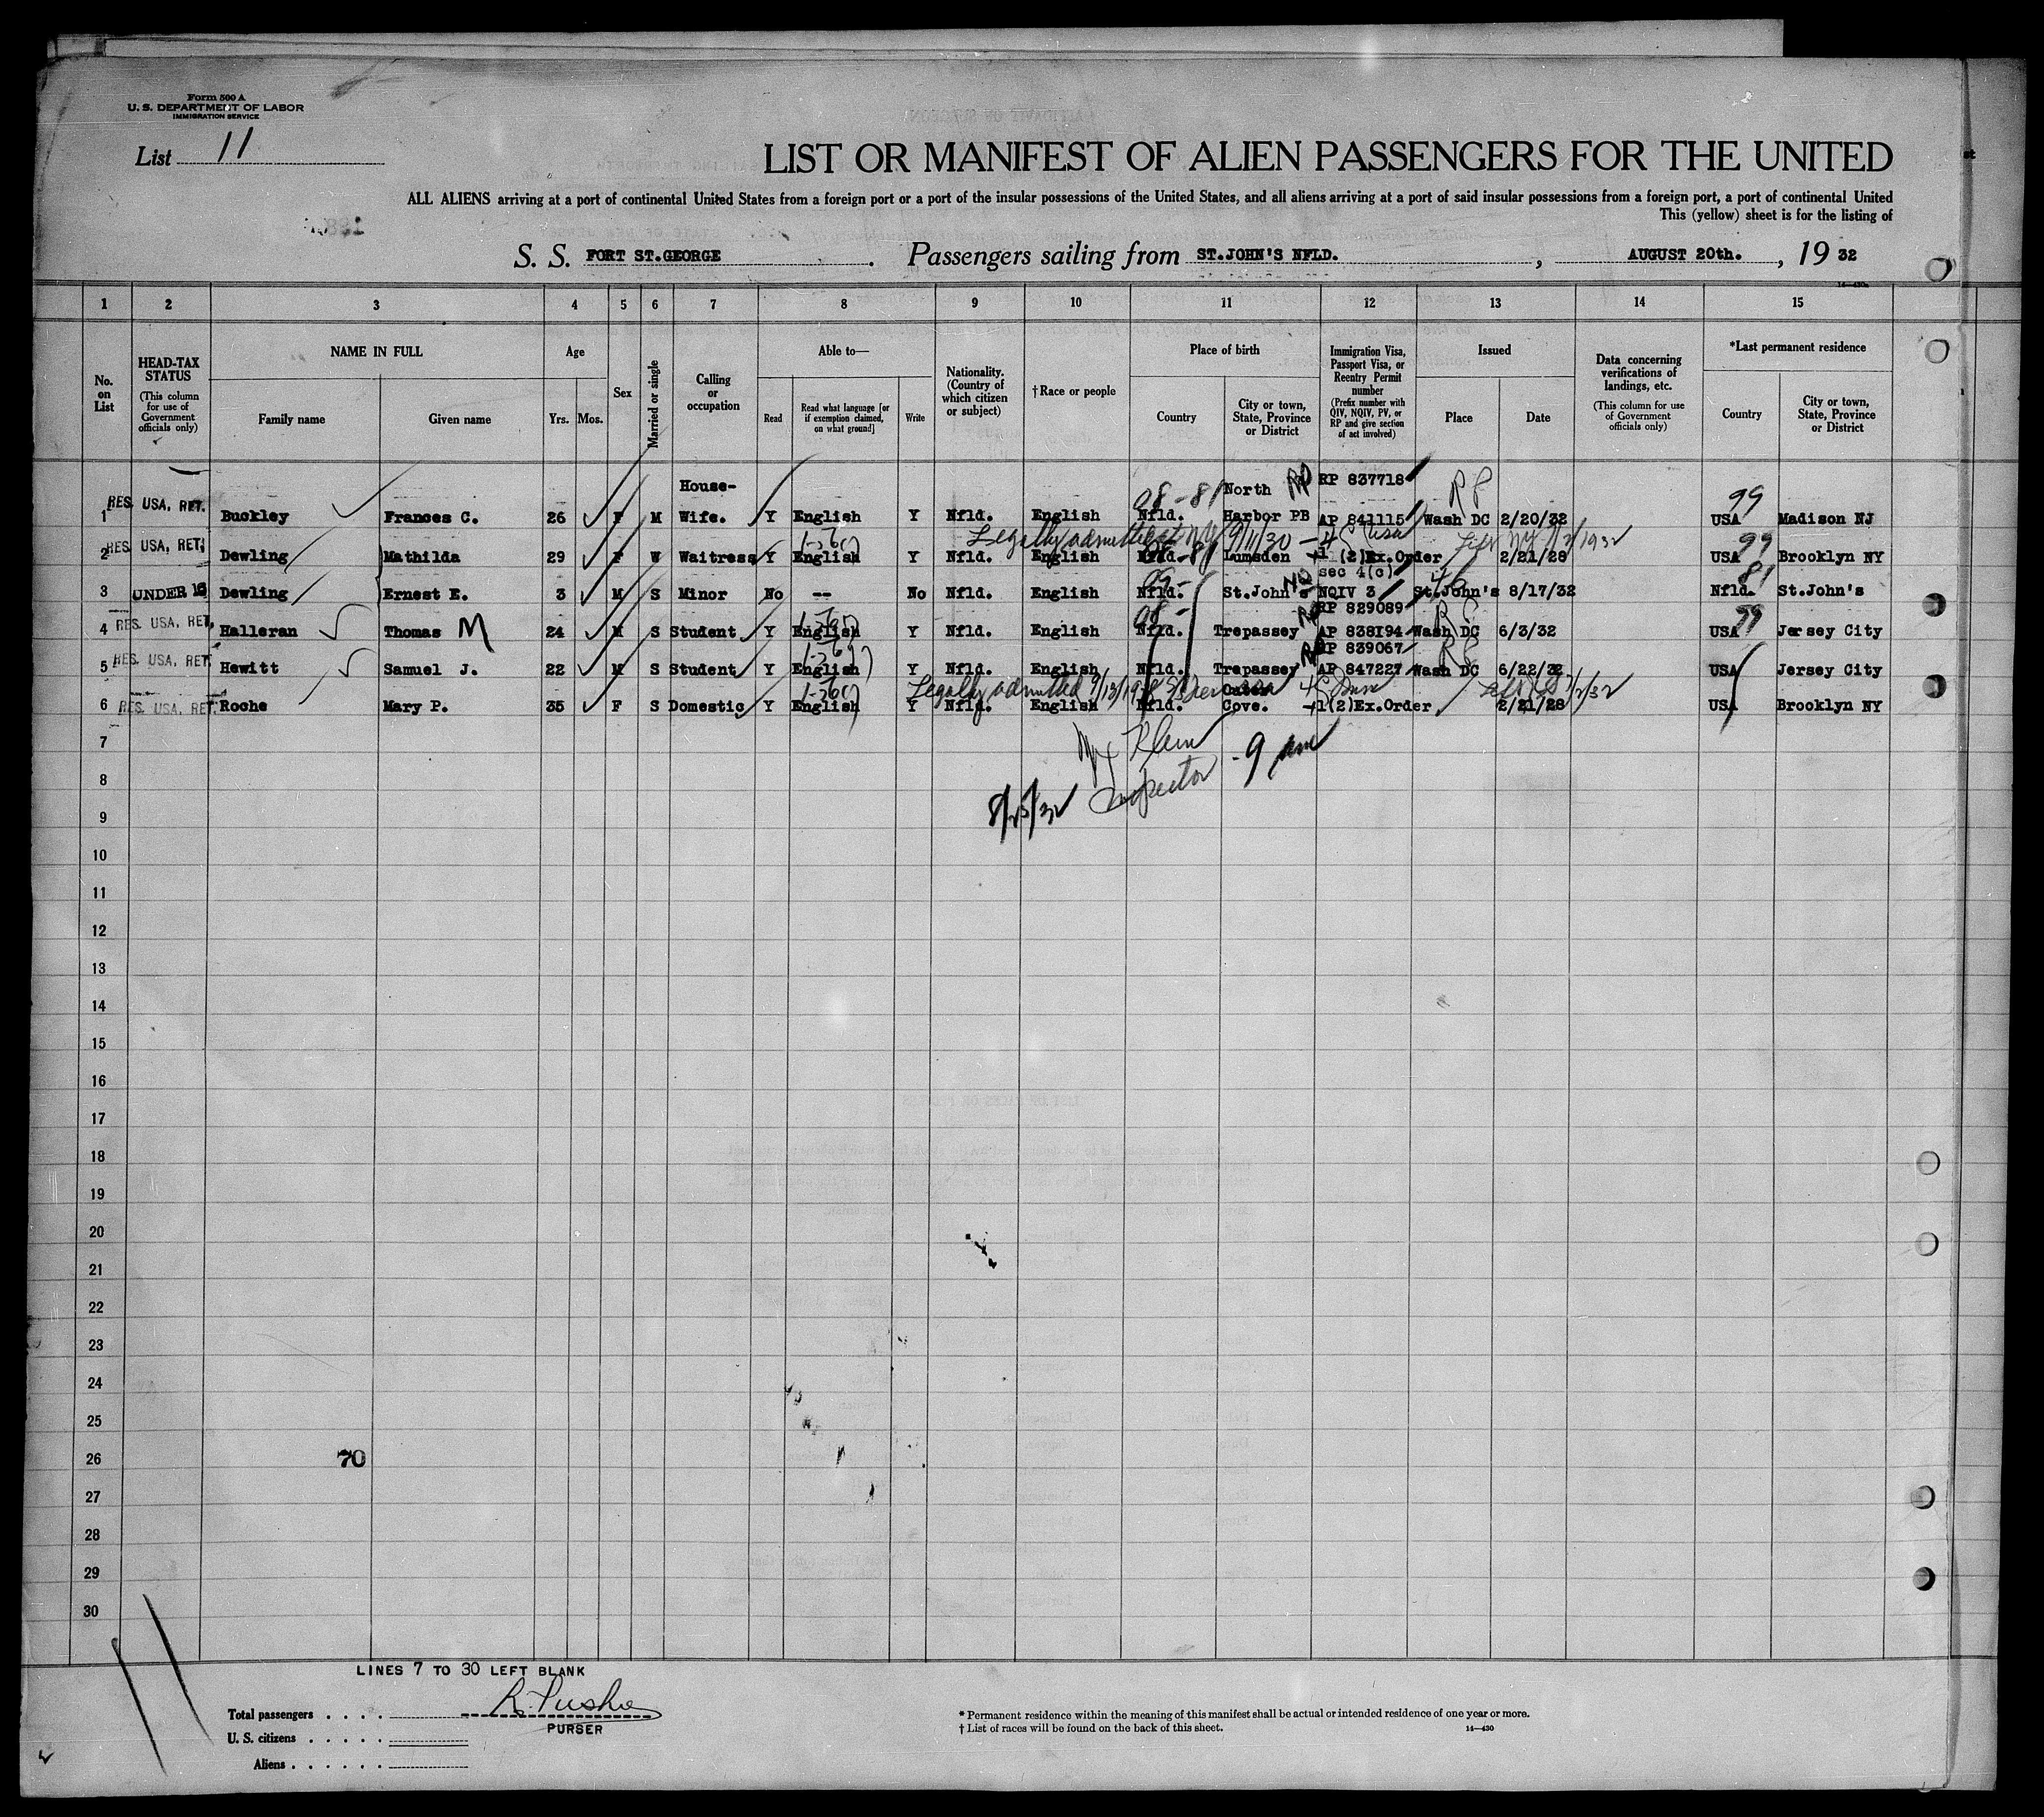 Form 500 A
U. S. DEPARTMENT OF LABOR
IMMIGRATION SERVICE
List 11
LIST OR MANIFEST OF ALIEN PASSENGERS FOR THE UNITED
ALL ALIENS arriving at a port of continental United States from a foreign port or a port of the insular possessions of the United States, and all aliens arriving at a port of said insular possessions from a foreign port, a port of continental United
This (yellow) sheet is for the listing of
S. S. FORT ST.GEORGE. Passengers sailing from ST.JOHN'S NFLD., AUGUST 20th., 19 32
1 2 3 4 5 6 7 8 9 10 11 12 13 14 15
No. on List
HEAD-TAX STATUS (This column for use of Government officials only)
NAME IN FULL
Family name Given name
Age
Yrs. Mos.
Sex
Married or single
Calling or occupation
Able to—
Read
Read what language [or if exemption claimed, on what ground]
Write
Nationality. (Country of which citizen or subject)
†Race or people
Place of birth
Country
City or town, State, Province or District
Immigration Visa, Passport Visa, or Reentry Permit number (Prefix number with QIV, NQIV, PV, or RP and give section of act involved)
Issued
Place Date
Data concerning verifications of landings, etc. (This column for use of Government officials only)
*Last permanent residence
Country
City or town, State, Province or District
House- North RP RP 837718 RP 99
1 RES. USA, RET. Buckley Frances C. 26 F M Wife. Y English Y Nfld. English Nfld. Harbor PB AP 841115 Wash DC 2/20/32 USA Madison NJ
Legally admitted at NY 9/11/30 - 4 C USA Left NY 7/2/1932
2 RES. USA, RET. Dewling Mathilda 29 F W Waitress Y English Y Nfld. English Nfld. Lumsden 1 (2)Ex.Order 2/21/28 USA Brooklyn NY
sec 4(c)
3 UNDER 16 Dewling Ernest E. 3 M S Minor No -- No Nfld. English Nfld. St.John's NQIV 3 St.John's 8/17/32 Nfld. St.John's
RP 829089
4 RES. USA, RET. Halleran Thomas M 24 M S Student Y English Y Nfld. English Nfld. Trepassey AP 838194 Wash DC 6/3/32 USA Jersey City
RP 839067
5 RES. USA, RET. Hewitt Samuel J. 22 M S Student Y English Y Nfld. English Nfld. Trepassey AP 847227 Wash DC 6/22/32 USA Jersey City
Legally admitted
6 RES. USA, RET. Roche Mary P. 35 F S Domestic Y English Y Nfld. English Nfld. Cove. 1(2)Ex.Order 2/21/28 USA Brooklyn NY
7
Klein
8 Inspector - 9 am
8/25/32
9
10
11
12
13
14
15
16
17
18
19
20
21
22
23
24
25
26 70
27
28
29
30
LINES 7 TO 30 LEFT BLANK
Total passengers
PURSER
U. S. citizens
Aliens
* Permanent residence within the meaning of this manifest shall be actual or intended residence of one year or more.
† List of races will be found on the back of this sheet. 14—430